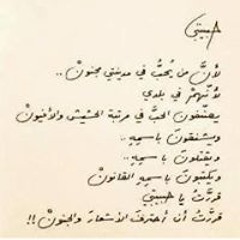 حبيبتي
لأنَّ من يُحبُّ في مدينتي مجنونْ ..
لأنهمْ في بلدي
يصنّفونَ الحبَّ في مرتبة الحشيشِ والأفيونْ
ويشنقونَ باسمهِ ..
ويقتلونَ باسمهِ ..
ويكتبونَ باسمهِ القانونْ
قررتُ يا حبيبتي
قررتُ أن أحترفَ الأشعارَ والجنونْ !!